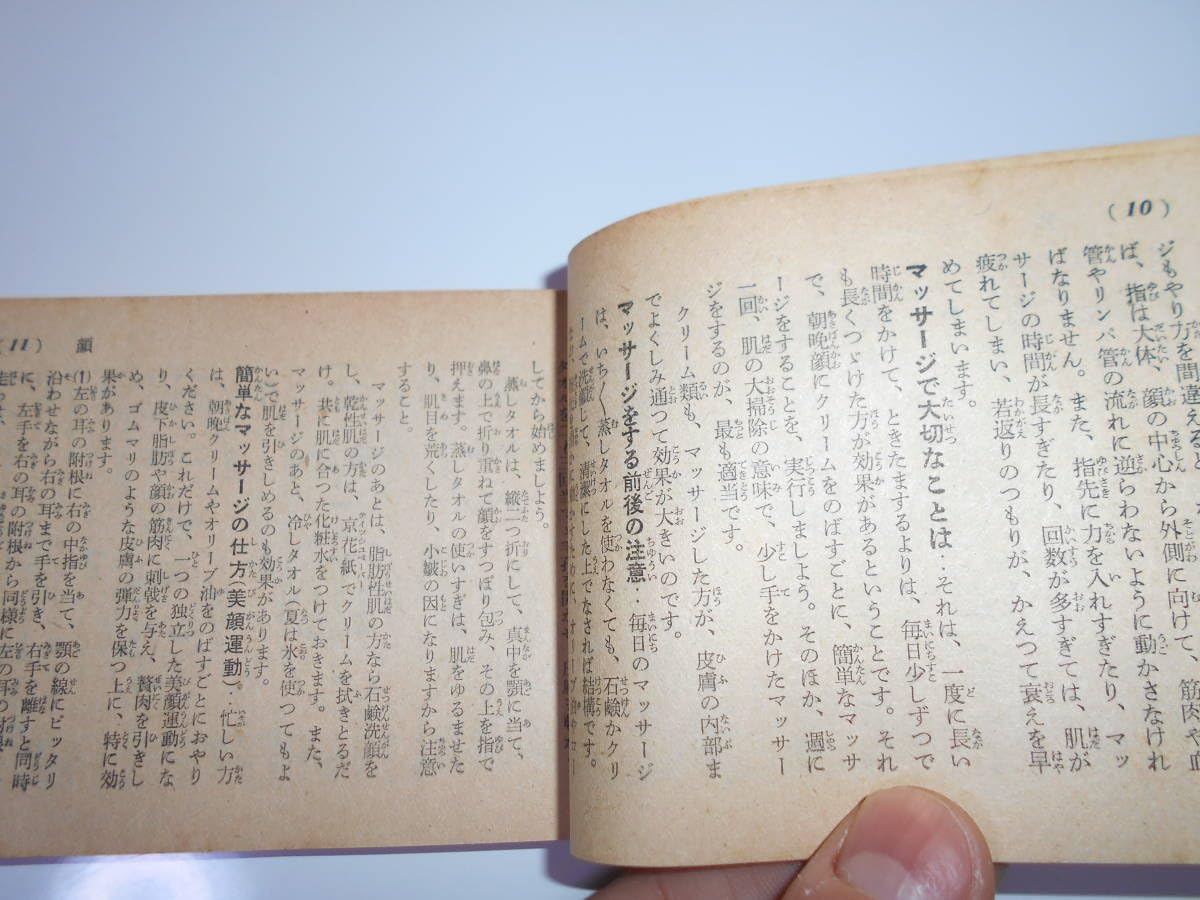 (10)
ジもやり方を間違えると
ば、指は大体、顔の中心から外側に向けて、筋肉や血
管やリンパ管の流れに逆らわないように動かさなけれ
ばなりません。また、指先に力を入れすぎたり、マッ
サージの時間が長すぎたり、回数が多すぎては、肌が
疲れてしまい、若返りのつもりが、かえって衰えを早
めてしまいます。
マッサージで大切なことは‥それは、一度に長い
時間をかけて、ときたまするよりは、毎日少しずつで
も長くつゞけた方が効果があるということです。それ
で、朝晩顔にクリームをのばすごとに、簡単なマッサ
ージをすることを、実行しましよう。そのほか、週に
一回、肌の大掃除の意味で、少し手をかけたマッサー
ジをするのが、最も適当です。
クリーム類も、マッサージした方が、皮膚の内部ま
でよくしみ通つて効果が大きいのです。
マッサージをする前後の注意‥毎日のマッサージ
は、いちく、蒸しタオルを使わなくても、石鹸かクリ
ームで洗顔して、清潔にした上でなされば結構です。
してから始めましよう。
蒸しタオルは、縦二つ折にして、真中を顎に当て、
鼻の上で折り重ねて顔をすつぽり包み、その上を指で
押えます。蒸しタオルの使いすぎは、肌をゆるませた
り、肌目を荒くしたり、小皺の因になりますから注意
すること。
マッサージのあとは、脂肪性肌の方なら石鹸洗顔を
し、乾性肌の方は、京花紙でクリームを拭きとるだ
け。共に肌に合つた化粧水をつけておきます。また、
マッサージのあと、冷しタオル(夏は氷を使つてもよ
い)で肌を引きしめるのも効果があります。
簡単なマッサージの仕方(美顔運動)‥忙しい方
は、朝晩クリームやオリーブ油をのばすごとにおやり
ください。これだけで、一つの独立した美顔運動にな
り、皮下脂肪や顔の筋肉に刺戟を与え、贅肉を引きし
め、ゴムマリのような皮膚の弾力を保つ上に、特に効
果があります。
(1)左の耳の附根に右の中指を当て、顎の線にピッタリ
沿わせながら右の耳まで手を引き、右手を離すと同時
に、左手を右の耳の附根から同様に左の耳の附根
(11) 顔